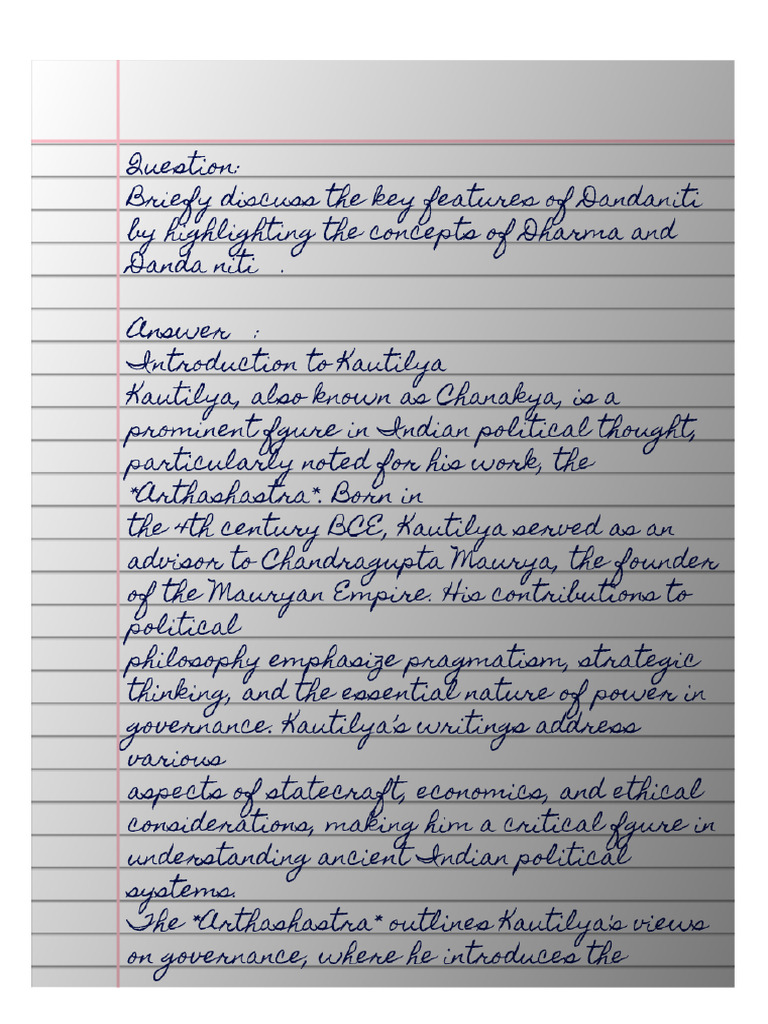 Question:
Briefy discuss the key features of Dandaniti
by highlighting the concepts of Dharma and
Danda niti .
Answer :
Introduction to Kautilya
Kautilya, also known as Chanakya, is a
prominent fgure in Indian political thought,
particularly noted for his work, the
*Arthashastra*. Born in
the 4th century BCE, Kautilya served as an
advisor to Chandragupta Maurya, the founder
of the Mauryan Empire. His contributions to
political
philosophy emphasize pragmatism, strategic
thinking, and the essential nature of power in
governance. Kautilya's writings address
various
aspects of statecraft, economics, and ethical
considerations, making him a critical fgure in
understanding ancient Indian political
systems.
The *Arthashastra* outlines Kautilya's views
on governance, where he introduces the